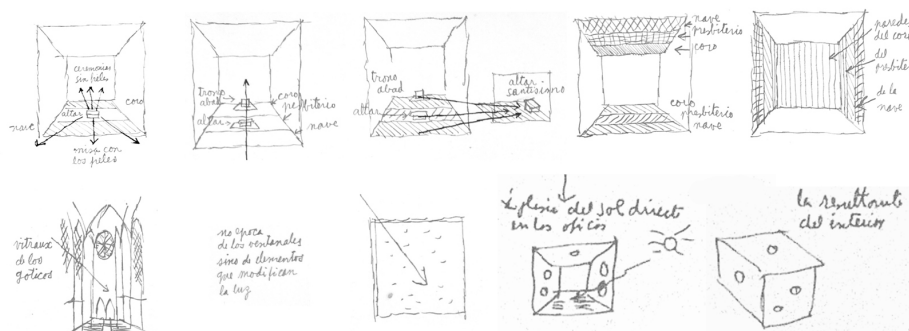 ceremonias
sin fieles
coro
altar
nave
misa con
los fieles
trono
abad
coro
presbiterio
altar
nave
trono
abad
altar
altar
santisimo
nave
presbiterio
coro
coro
presbiterio
nave
paredes
del coro
del
presbiterio
de la
nave
vitraux
de los
goticos
no epoca
de los ventanales
sino de elementos
que modifican
la luz
iglesia del sol directo
en los oficios
la resultante
del interior